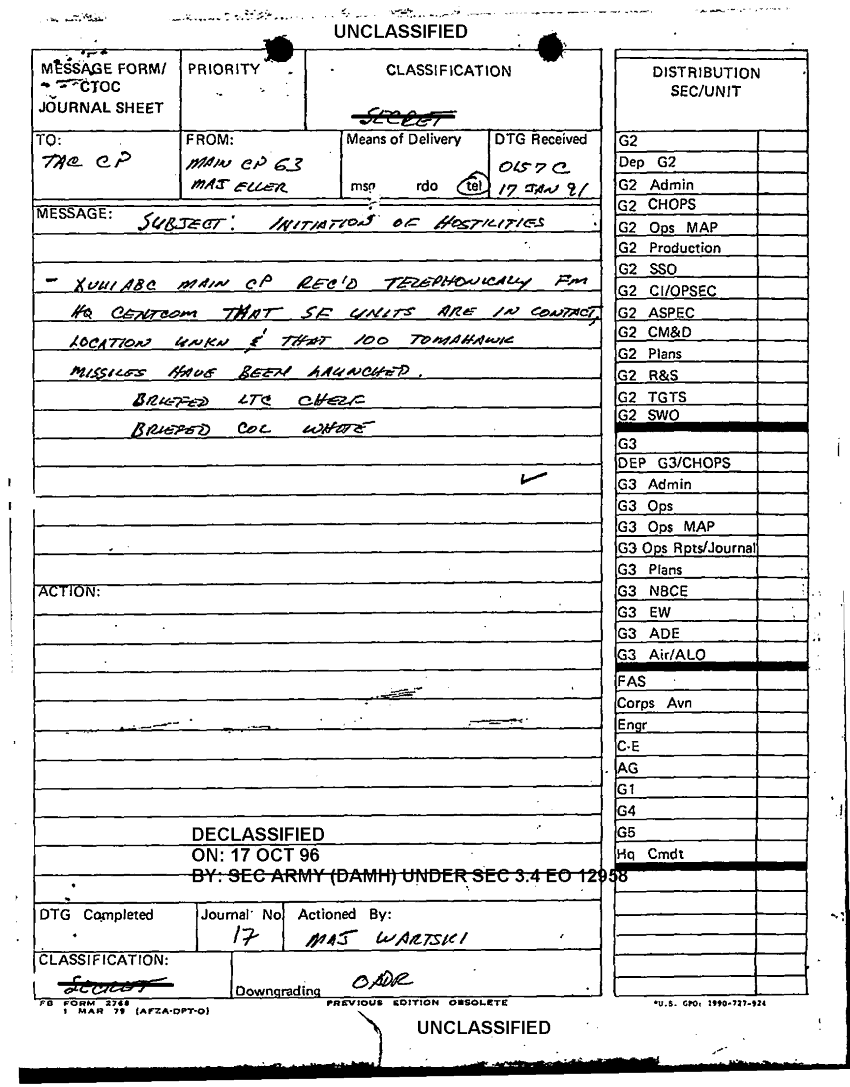 UNCLASSIFIED
MESSAGE FORM/
CTOC
JOURNAL SHEET
PRIORITY
CLASSIFICATION
SECRET
TO:
TAC CP
FROM:
MAIN CP G3
MAJ ELLER
Means of Delivery
msg rdo tel
DTG Received
0157 C
17 JAN 91
MESSAGE:
SUBJECT: INITIATION OF HOSTILITIES
- XVIII ABC MAIN CP REC'D TELEPHONICALLY FM
HQ CENTCOM THAT SF UNITS ARE IN CONTACT,
LOCATION UNKN & THAT 100 TOMAHAWK
MISSILES HAVE BEEN LAUNCHED.
BRIEFED LTC
BRIEFED COL WHITE
ACTION:
DECLASSIFIED
ON: 17 OCT 96
BY: SEC ARMY (DAMH) UNDER SEC 3.4 EO 12958
DTG Completed
Journal No
17
Actioned By:
MAJ WARTSKI
CLASSIFICATION:
SECRET
Downgrading OADR
FB FORM 2768
1 MAR 79 (AFZA-DPT-O)
PREVIOUS EDITION OBSOLETE
UNCLASSIFIED
DISTRIBUTION
SEC/UNIT
G2
Dep G2
G2 Admin
G2 CHOPS
G2 Ops MAP
G2 Production
G2 SSO
G2 CI/OPSEC
G2 ASPEC
G2 CM&D
G2 Plans
G2 R&S
G2 TGTS
G2 SWO
G3
DEP G3/CHOPS
G3 Admin
G3 Ops
G3 Ops MAP
G3 Ops Rpts/Journal
G3 Plans
G3 NBCE
G3 EW
G3 ADE
G3 Air/ALO
FAS
Corps Avn
Engr
C-E
AG
G1
G4
G5
Hq Cmdt
*U.S. GPO: 1990-727-924